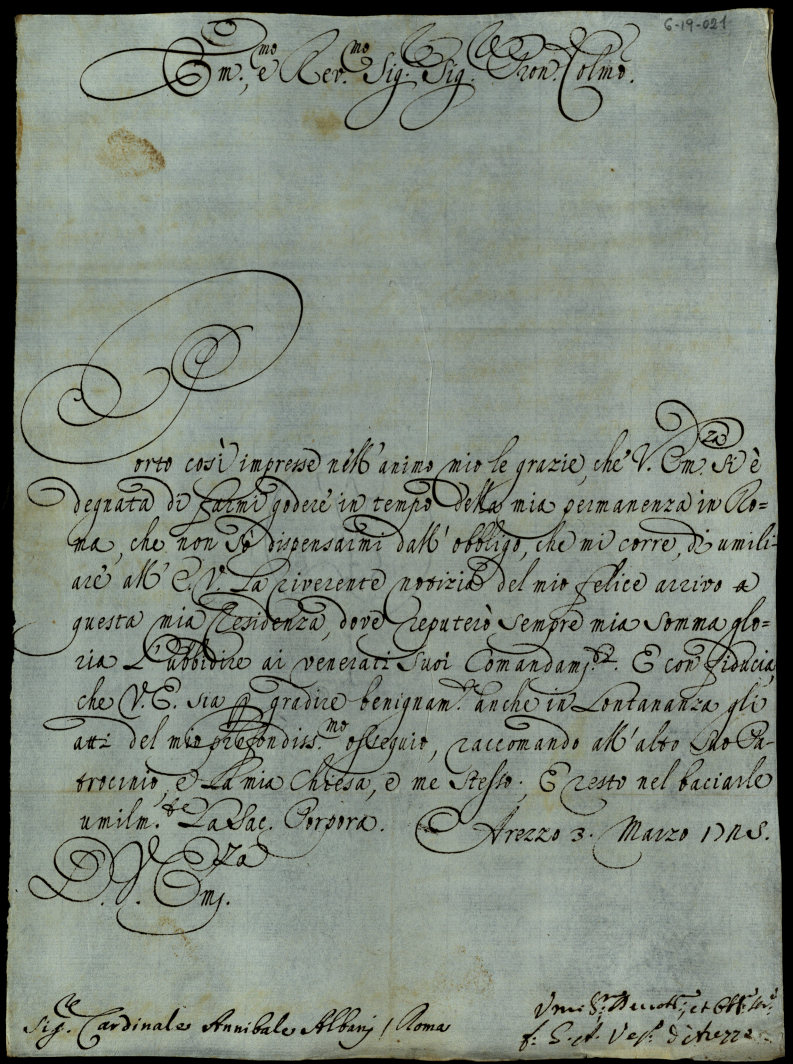 6-19-021
Em.mo e Rev.mo Sig. Sig. Pron. Colmo.
Porto così impresse nell'animo mio le grazie, che V. Em.za si è
degnata di farmi godere in tempo della mia permanenza in Ro=
ma, che non sò dispensarmi dall'obbligo, che mi corre, di umili=
are all'E. V. la riverente notizia del mio felice arrivo a
questa mia Residenza, dove reputerò sempre mia somma glo=
ria l'ubbidire ai venerati suoi Comandam.ti. E con fiducia,
che V. E. sia p gradire benignam.te anche in lontananza gli
atti del mio profondiss.mo ossequio, raccomando all'alto suo Pa=
trocinio, e la mia Chiesa, e me stesso; E resto nel baciarle
umilm.te la Sac. Porpora. Arezzo 3. Marzo
D. V. Em.za
Sig.re Cardinale Annibale Albani / Roma
Um.o et
Ves.o d'Arezzo